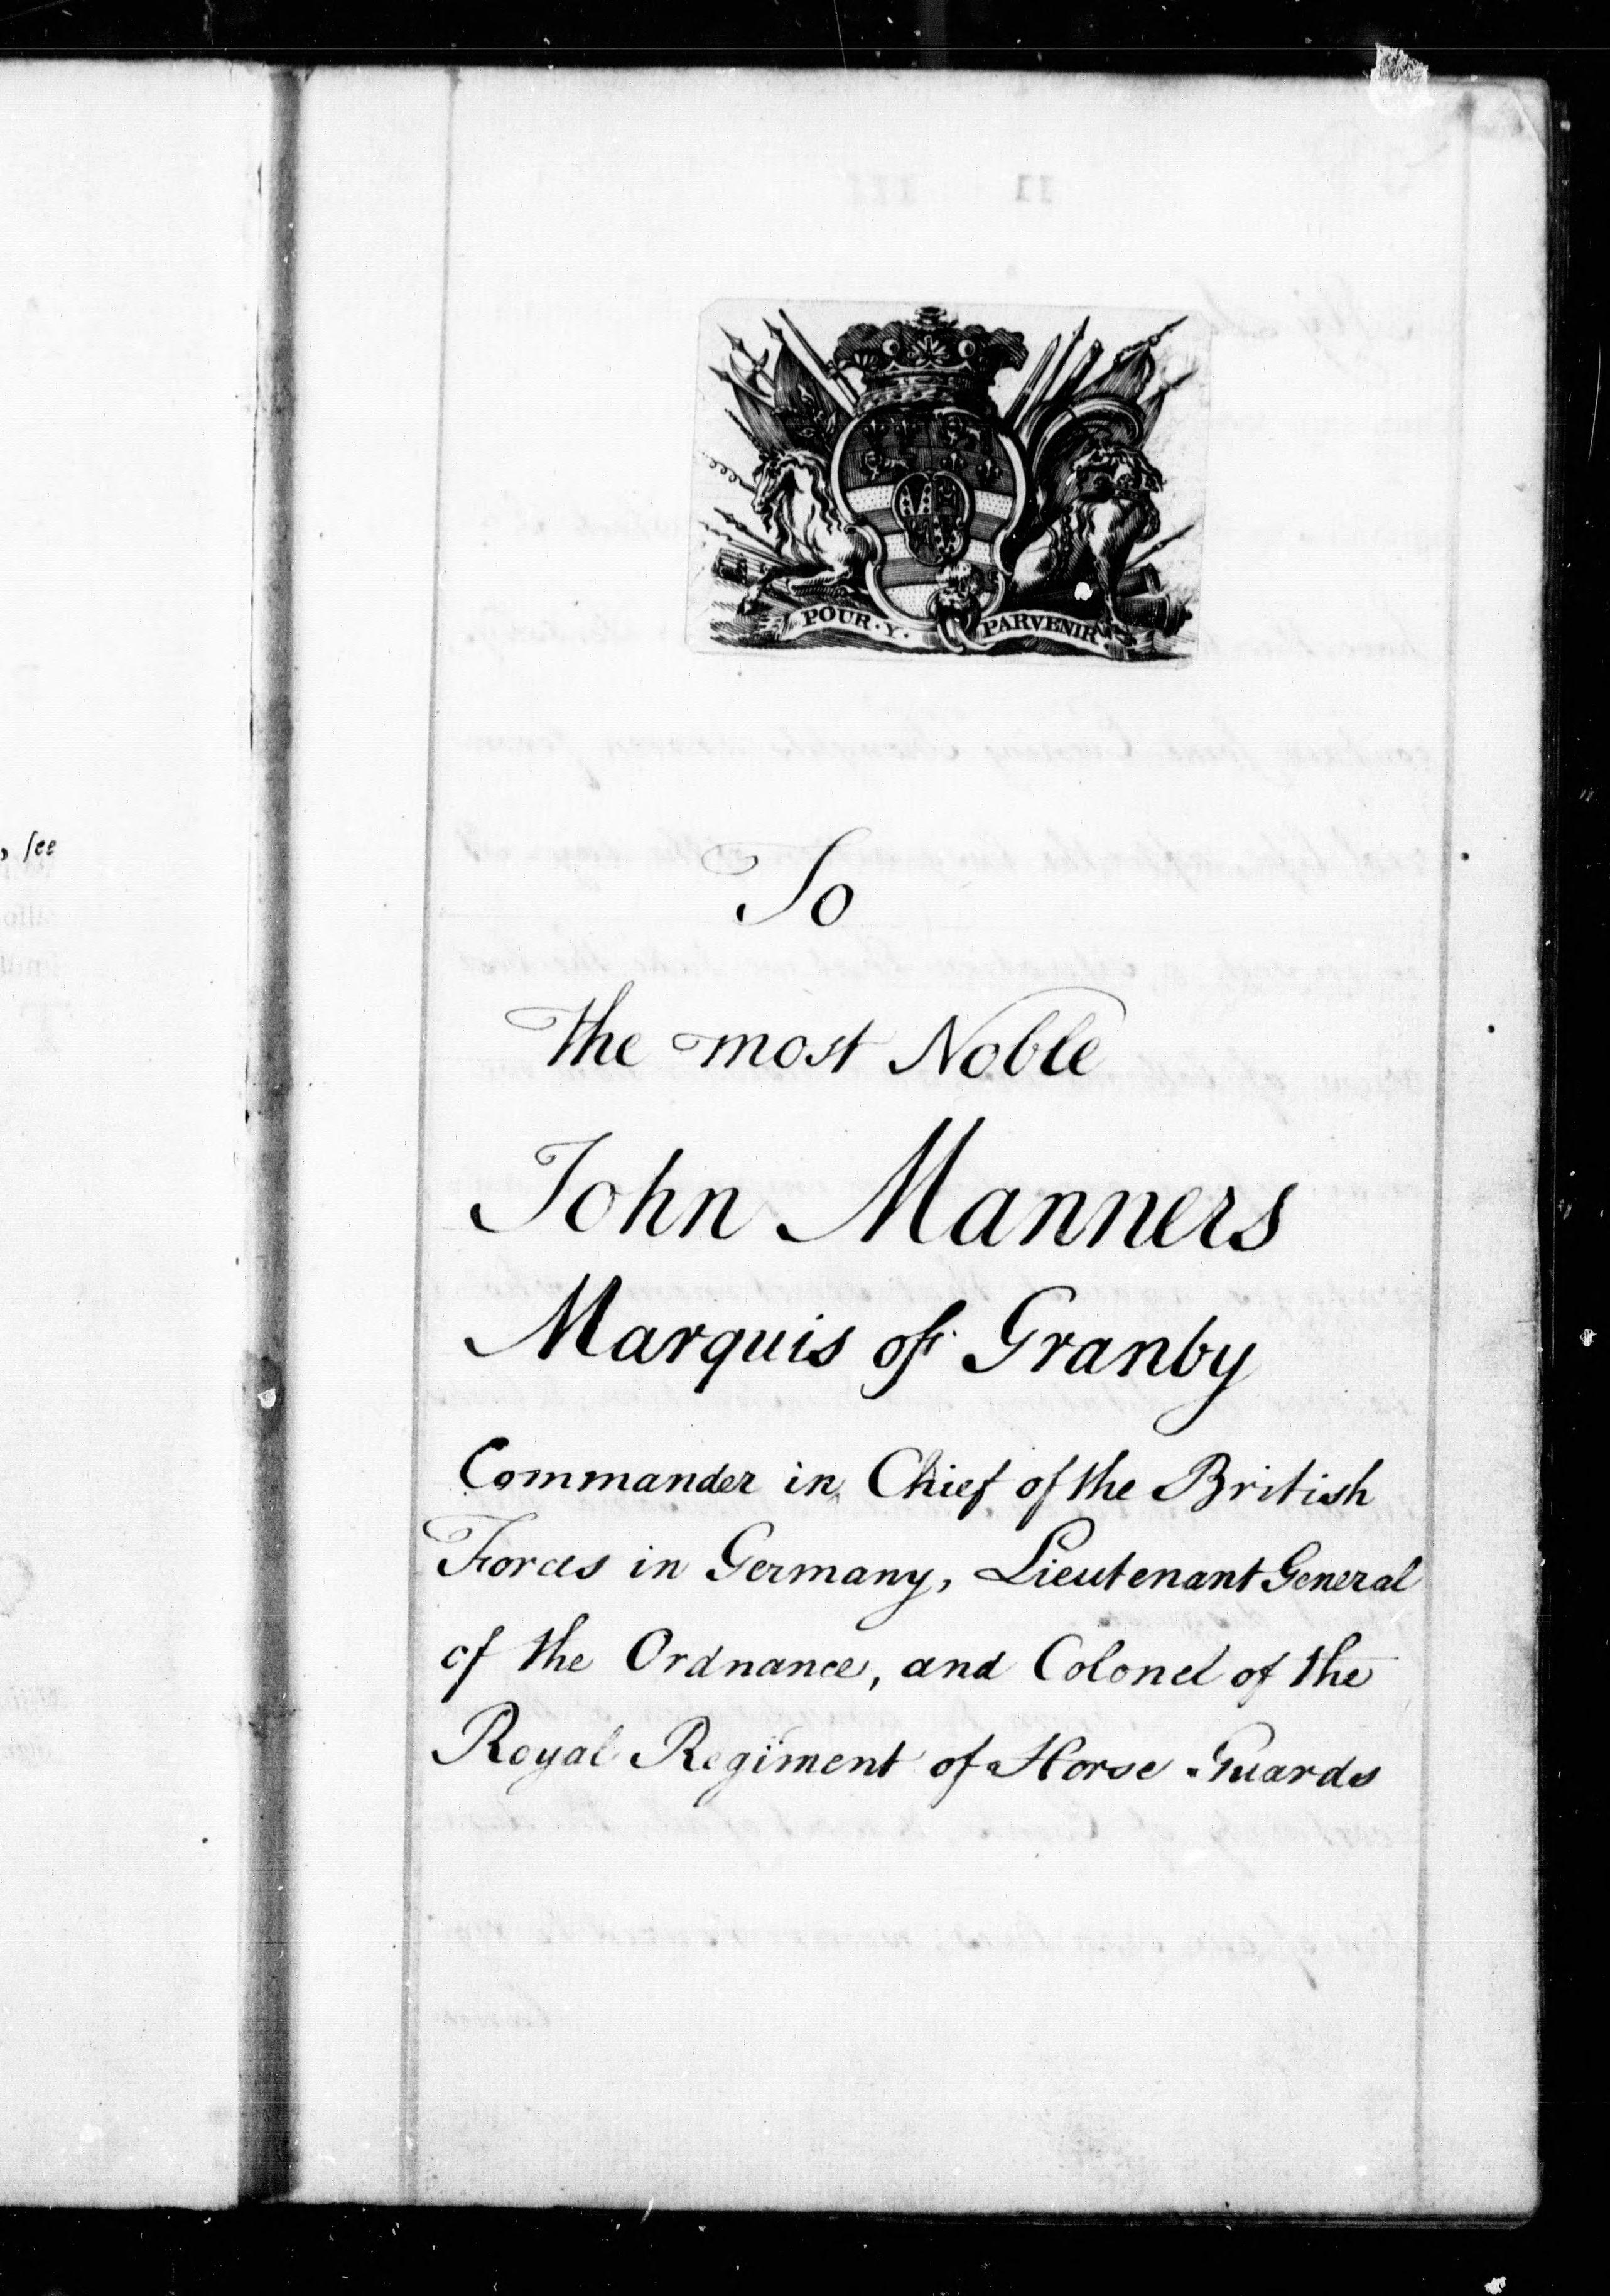 , see
POUR · Y · PARVENIR
To
the most Noble
John Manners
Marquis of Granby
Commander in Chief of the British
Forces in Germany, Lieutenant General
of the Ordnance, and Colonel of the
Royal Regiment of Horse Guards